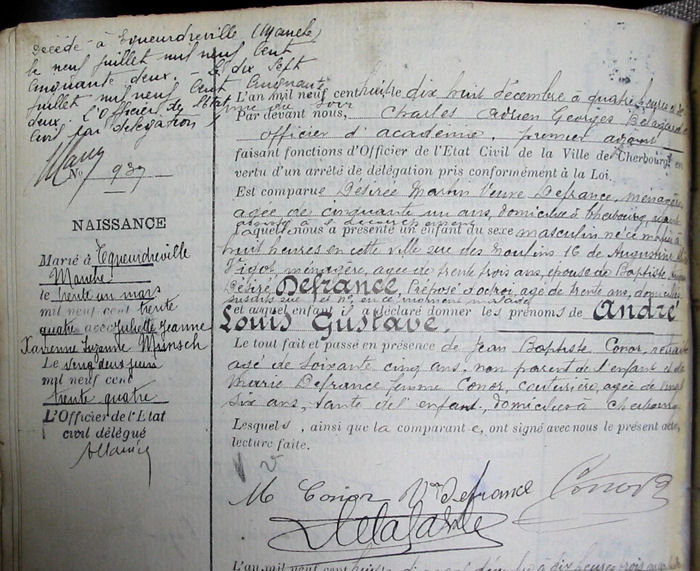 Décédé à Equeurdreville (Manche)
le neuf juillet mil neuf cent
cinquante deux. Le dix sept
juillet mil neuf cent cinquante
deux. L'Officier de l'Etat
civil par délégation
No 937
NAISSANCE
Marié à Equeurdreville
Manche
le trente un mars
mil neuf cent trente
quatre avec Juliette Jeanne
Xavienne Suzanne Minsch
Le vingt deux juin
mil neuf cent
trente quatre
L'Officier de l'Etat
civil délégué
L'an mil neuf cent huit le dix huit décembre à quatre heures
du soir
Par devant nous, Charles Adrien Georges
officier d'académie, premier adjoint
faisant fonctions d'Officier de l'Etat Civil de la Ville de Cherbourg en
vertu d'un arrêté de délégation pris conformément à la Loi.
Est comparue Désirée Martin Veuve Defrance, ménagère
agée de cinquante un ans, domiciliée à Cherbourg, ayant
assisté à l'accouchement
laquelle nous a présenté un enfant du sexe masculin né ce matin à
huit heures en cette ville rue des Moulins 16 de Augustine
Vigot, ménagère, agée de trente trois ans, épouse de Baptiste
Désiré Defrance, Préposé d'octroi, agé de trente ans, domiciliés
susdits rue et no, en ce moment malade
et auquel enfant il a déclaré donner les prénoms de André
Louis Gustave.
Le tout fait et passé en présence de Jean Baptiste Conor, retraité
agé de soixante cinq ans, non parent de l'enfant et de
Marie Defrance femme Conor, couturière, agée de vingt
six ans, tante de l'enfant, domiciliés à Cherbourg
Lesquels, ainsi que la comparante, ont signé avec nous le présent acte,
lecture faite.
M Conor Vve Defrance Conor
L'an mil neuf cent huit le dix neuf décembre à dix heures trois